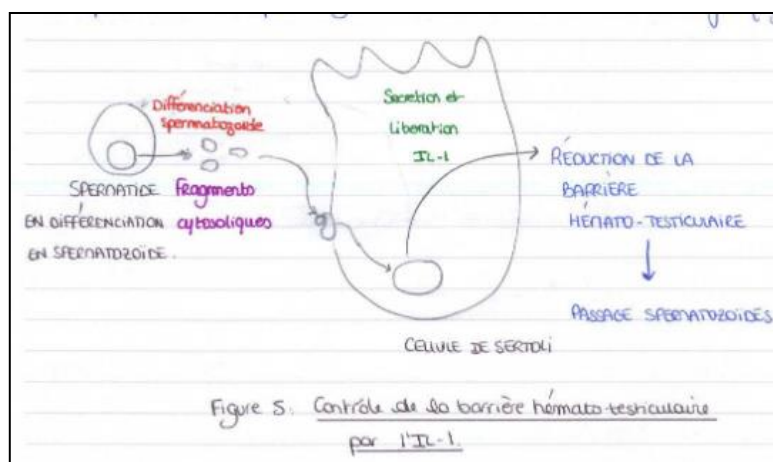 Différenciation
spermatozoide
SPERMATIDE
EN DIFFÉRENCIATION
EN SPERMATOZOÏDE.
Fragments
cytosoliques
Secretion et
liberation
IL-1
RÉDUCTION DE LA
BARRIÈRE
HÉMATO-TESTICULAIRE
PASSAGE SPERMATOZOÏDES
CELLULE DE SERTOLI
Figure 5. Contrôle de la barrière hémato-testiculaire
par l'IL-1.